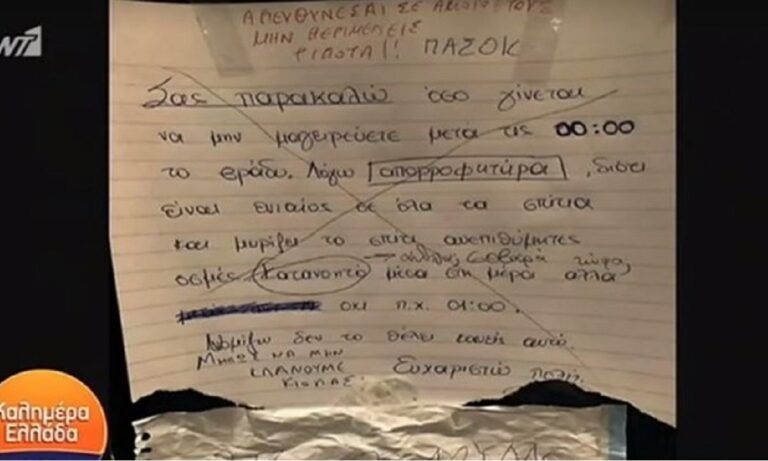 ΑΝΤ1
ΑΠΕΥΘΥΝΕΣΑΙ ΣΕ ΑΝΟΗΤΟΥΣ
ΜΗΝ ΠΕΡΙΜΕΝΕΙΣ
ΤΙΠΟΤΑ!! ΠΑΣΟΚ
Σας παρακαλώ όσο γίνεται
να μην μαγειρεύετε μετά τις 00:00
το βράδυ. Λόγω απορροφητήρα, διότι
είναι ενιαίος σε όλα τα σπίτια
και μυρίζει το σπίτι ανεπιθύμητες
→ σοβαρά τώρα;
οσμές. Κατανοητό μέσα στη μέρα αλλά
όχι π.χ. 01:00.
Νομίζω δεν το θέλει κανείς αυτό.
ΜΗΠΩΣ ΝΑ ΜΗΝ
ΚΛΑΝΟΥΜΕ
ΚΙΟΛΑΣ
Ευχαριστώ πολύ.
Καλημέρα
Ελλάδα